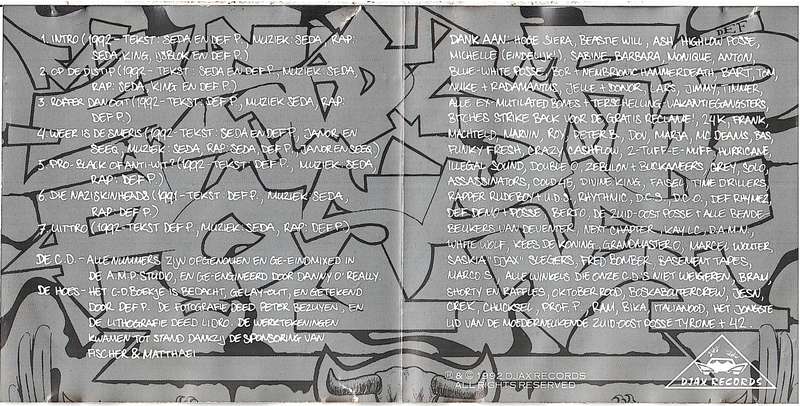 1. INTRO (1992 - TEKST: SEDA EN DEF P., MUZIEK: SEDA, RAP:
SEDA, KING, IJSBLOK EN DEF P.)
2. OP DE DISTIP (1992 - TEKST: SEDA EN DEF P., MUZIEK SEDA,
RAP: SEDA, KING EN DEF P.)
3. ROFFER DAN OOIT (1992 - TEKST: DEF P., MUZIEK SEDA, RAP:
DEF P.)
4. WEER IS DE SMERIS (1992 - TEKST: SEDA EN DEF P., JANOR EN
SEEQ, MUZIEK: SEDA, RAP: SEDA, DEF P., JANOR EN SEEQ)
5. PRO-BLACK OF ANTI-WIT? (1992 - TEKST: DEF P., MUZIEK SEDA,
RAP: DEF P.)
6. DIE NAZISKINHEADS (1991 - TEKST: DEF P., MUZIEK: SEDA,
RAP: DEF P.)
7. UITTRO (1992 - TEKST: DEF P., MUZIEK: SEDA, RAP: DEF P.)
DE C.D. - ALLE NUMMERS ZIJN OPGENOMEN EN GE-EINDMIXED IN
DE A.M.P. STUDIO, EN GE-ENGINEERD DOOR DANNY O'REALLY.
DE HOES - HET C.D. BOEKJE IS BEDACHT, GELAY-OUT, EN GETEKEND
DOOR DEF P. DE FOTOGRAFIE DEED PETER BEZUYEN, EN
DE LITHOGRAFIE DEED LIDRO. DE WERKTEKENINGEN
KWAMEN TOT STAND DANKZIJ DE SPONSORING VAN
FISCHER & MATTHAEI.
DEF
DANK AAN: HOGE SIERA, BEASTIE WILL, ASH, HIGHLOW POSSE,
MICHELLE (EINDELIJK!), SABINE, BARBARA, MONIQUE, ANTON,
BLUE-WHITE POSSE, IGOR + NEMBRIONIC HAMMERDEATH, BART, TOM,
NUKE + RADAMANTUS, JELLE + DONOR, LARS, JIMMY, TIMMER,
ALLE EX-MUTILATED BONES + TERSCHELLING VAKANTIEGANGSTERS,
BITCHES STRIKE BACK VOOR DE GRATIS RECLAME!, 24K, FRANK,
MACHTELD, MARVIN, ROY, PETER B., DOV, MARJA, MC DEAMS, BAS
FUNKY FRESH, CRAZY, CASHFLOW, 2-TUFF-E-NUFF, HURRICANE,
ILLEGAL SOUND, DOUBLE O, ZEBULON + BUCKANEERS, GREY, SOLO,
ASSASSINATORS, COLD 45, DIVINE KING, FAISEL, TIME DRILLERS,
RAPPER RUDEBOY + U.D.S., RHYTHMIC, D.C.S., D.C.O., DEF RHYMEZ
DEF DEMO + POSSE, BERTO, DE ZUID-OOST POSSE + ALLE BENDE-
BEUKERS VAN DEVENTER, NEXT CHAPTER, KAY I.C., D.A.M.N.,
WHITE WOLF, KEES DE KONING, GRANDMASTER O, MARCEL WOUTER,
SASKIA "DJAX" SLEGERS, FRED BOMBER, BASEMENT TAPES,
MARCO S., ALLE WINKELS DIE ONZE C.D.'S NIET WEIGEREN, BRAM,
SHORTY EN RAFFLES, OKTOBER ROOD, BOSKABOUTERCREW, JESN,
CREK, CHUCKSEL, PROF. P., RAM, BIKA, ITALIANOOD, HET JONGSTE
LID VAN DE MOEDERNEUKENDE ZUID-OOST POSSE TYRONE + 42.
℗ & © 1992 DJAX RECORDS
ALL RIGHTS RESERVED
DJAX RECORDS